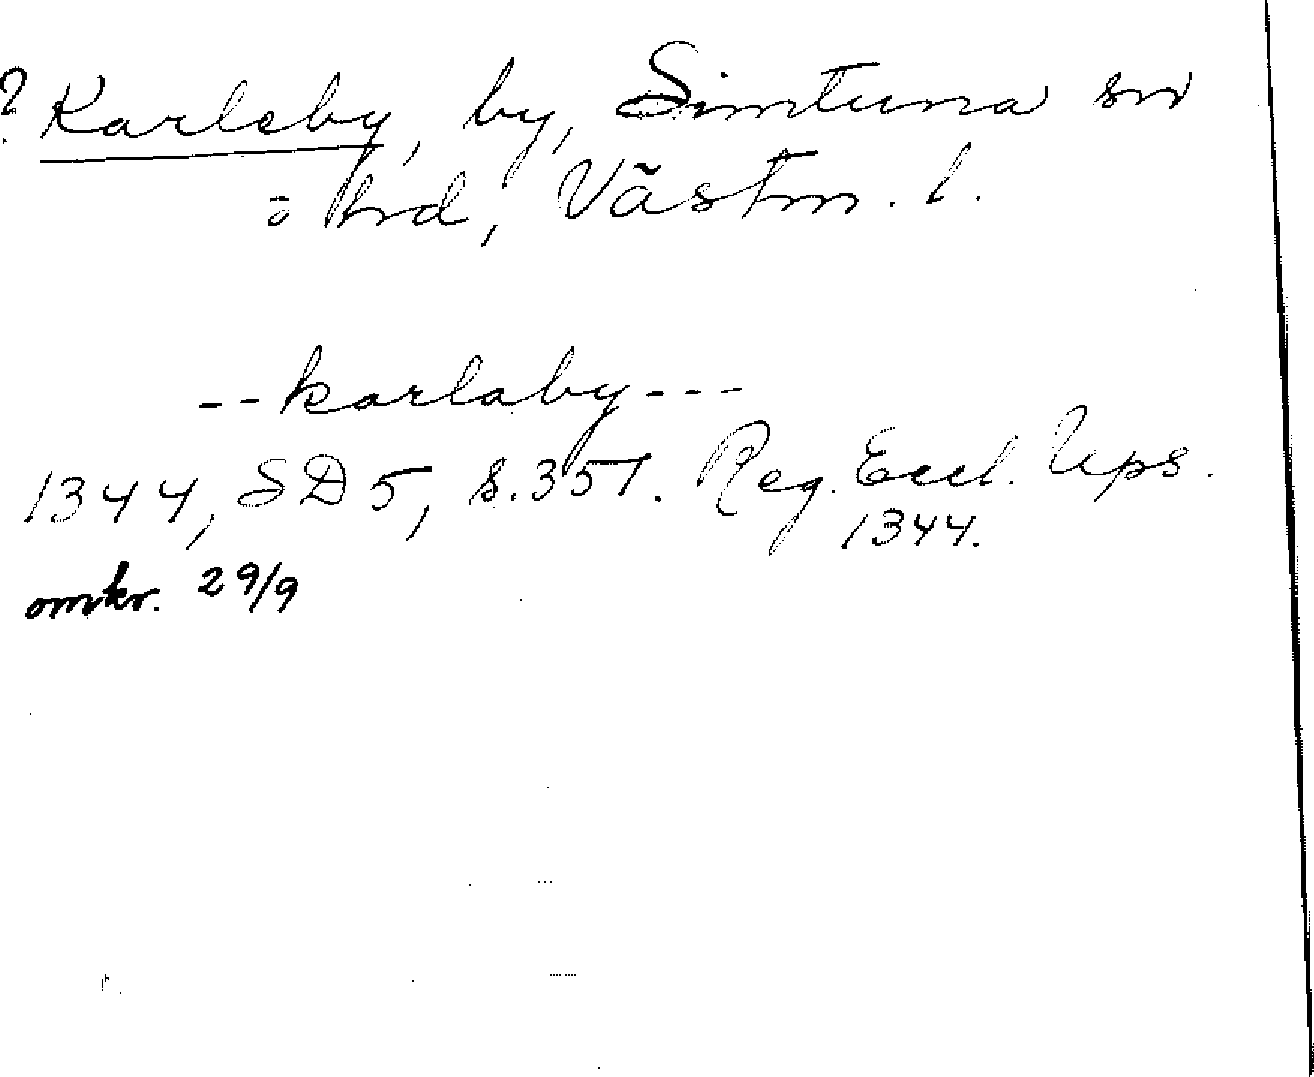 ? Karleby, by, Simtuna sn
o hd, Västm. l.
--karlaby---
1344, SD 5, s. 351. Reg. Eccl. Ups.
1344.
omkr. 29/9